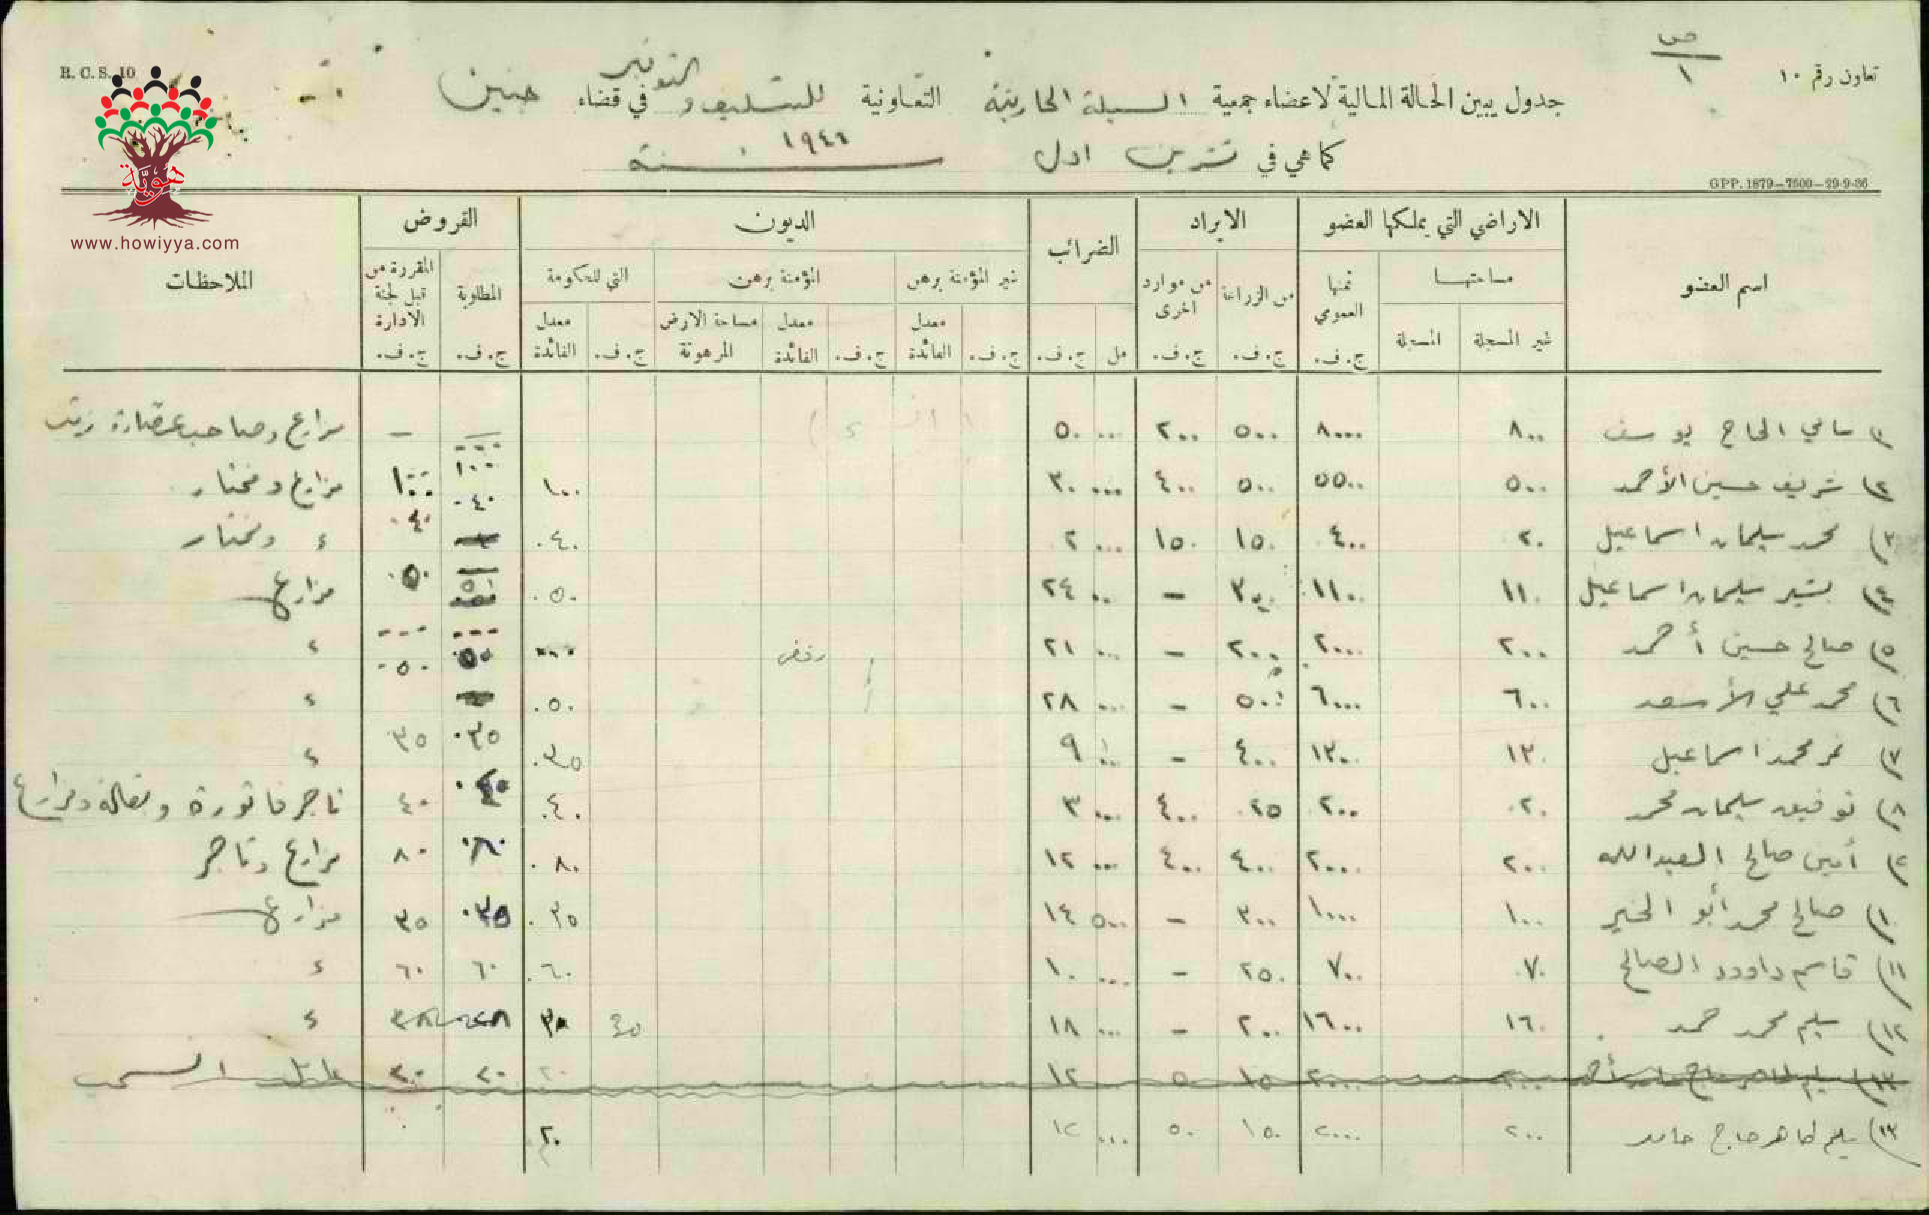 ص
١
تعاون رقم ١٠
R. C. S. 10
جدول يبين الحالة المالية لاعضاء جمعية السيلة الحارثية التعاونية للتسليف والتوفير في قضاء جنين
كما هي في تشرين اول سنة ١٩٤٦
GPP. 1879—7500—29-9-36
هوية
www.howiyya.com
اسم العضو
الاراضي التي يملكها العضو
الايراد
الضرائب
الديون
القروض
الملاحظات
مساحتها
ثمنها العمومي
من الزراعة
من موارد اخرى
غير المؤمنة برهن
المؤمنة برهن
التي للحكومة
المطلوبة
المقررة من قبل لجنة الادارة
غير المسجلة
المسجلة
ج. ف.
ج. ف.
ج. ف.
مل
ج. ف.
ج. ف.
معدل الفائدة
ج. ف.
معدل الفائدة
مساحة الارض المرهونة
ج. ف.
معدل الفائدة
ج. ف.
ج. ف.
سامي الحاج يوسف ٨٠٠ ٨٠٠٠ ٥٠٠ ٢٠٠ ... ٥٠ — مزارع وصاحب عصارة زيت
٢) شريف حسين الأحمد ٥٠٠ ٥٥٠٠ ٥٠٠ ٤٠٠ ... ٣٠ ١٠٠ ١٠٠ ١٠٠ مزارع ومختار
٣) محمد سليمان اسماعيل ٢٠ ٤٠٠ ١٥٠ ١٥٠ ... ٢ ٤٠ ٤٠ ٤٠ ء ومختار
٤) بشير سليمان اسماعيل ١١٠ ١١٠٠ ٣٠٠ — ٢٤ ٥٠ ٥٠ ٥٠ مزارع
٥) صالح حسين أحمد ٢٠٠ ٢٠٠٠ ٢٠٠ — ... ٢١ رفض --- --- ء
٦) محمد علي الأسعد ٦٠٠ ٦٠٠٠ ٥٠٠ — ... ٢٨ ٥٠ ٥٠ ٥٠ ء
٧) نمر محمد اسماعيل ١٣٠ ١٣٠٠ ٤٠٠ — ٩ ٣٥ ٣٥ ٣٥ ء
٨) توفيق سليمان محمد ٢٠ ٢٠٠ ٢٥ ٤٠٠ ... ٣ ٤٠ ٤٠ تاجر فاتورة وبقالة ومزارع
٩) أمين صالح العبدالله ٢٠٠ ٢٠٠٠ ٤٠٠ ٤٠٠ ... ١٢ ٨٠ ٨٠ ٨٠ مزارع وتاجر
١٠) صالح محمد أبو الخير ١٠٠ ١٠٠٠ ٣٠٠ — ٥٠٠ ١٤ ٣٥ ٣٥ ٣٥ مزارع
١١) قاسم داوود الصالح ٧٠ ٧٠٠ ٢٥٠ — ... ١٠ ٦٠ ٦٠ ٦٠ ء
١٢) سليم محمد حمد ١٦٠ ١٦٠٠ ٢٠٠ — ... ١٨ ٣٨ ء
١٣) ٢٠٠ ٢٠٠٠ ١٥ ٥ ١٢ ٢٠ ٢٠ ٢٠
١٣) سليم طاهر حاج حامد ٢٠٠ ٢٠٠٠ ١٥٠ ٥٠ ... ١٢ ٢٠